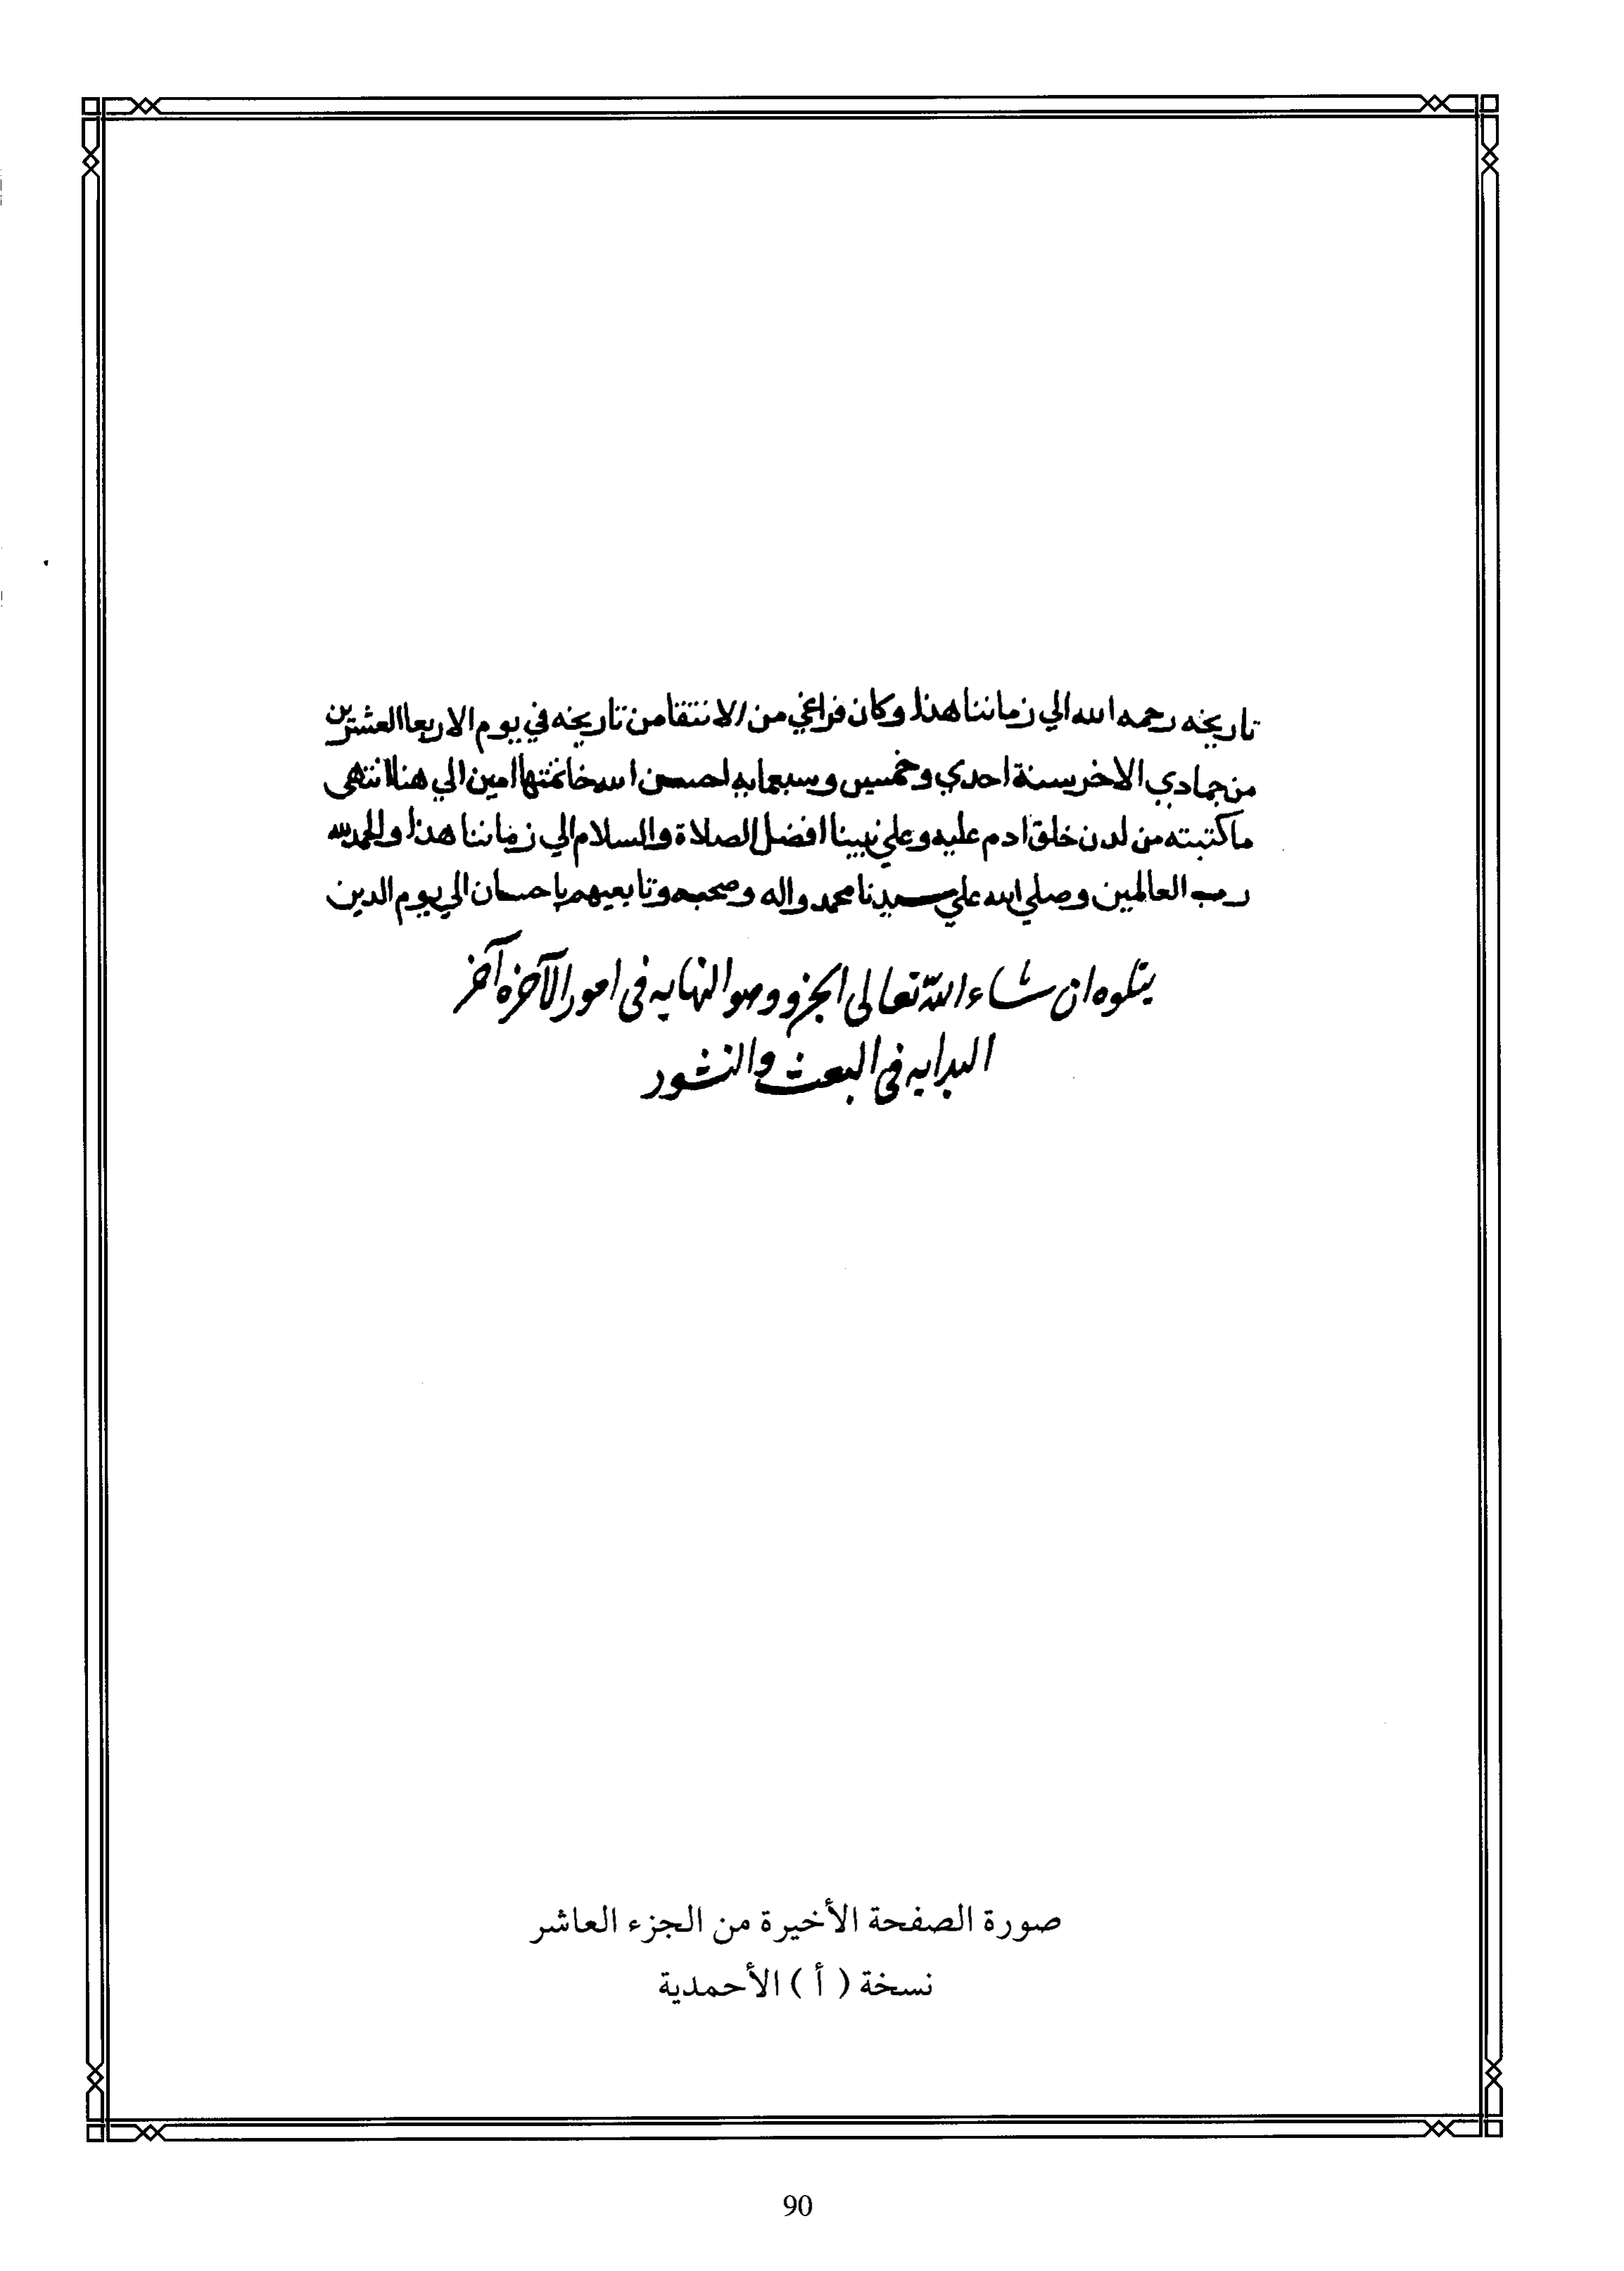 تاريخه رحمه الله الي زماننا هذا وكان فراغي من الانتقا من تاريخه في يوم الاربعا العشرين
من جمادي الاخر سنة احدي وخمسين وسبعمايه احسن الله خاتمتها امين الي هنا انتهى
ما كتبته من لدن خلق ادم عليه وعلي نبينا افضل الصلاة والسلام الي زماننا هذا والحمد لله
رب العالمين وصلي الله علي سيدنا محمد واله وصحبه وتابعيهم باحسان الي يوم الدين
يتلوه ان شاء الله تعالى الجزو وهو النهايه فى امور الآخره آخر
البدايه فى البعث والنشور
صورة الصفحة الأخيرة من الجزء العاشر
نسخة ( أ ) الأحمدية
90